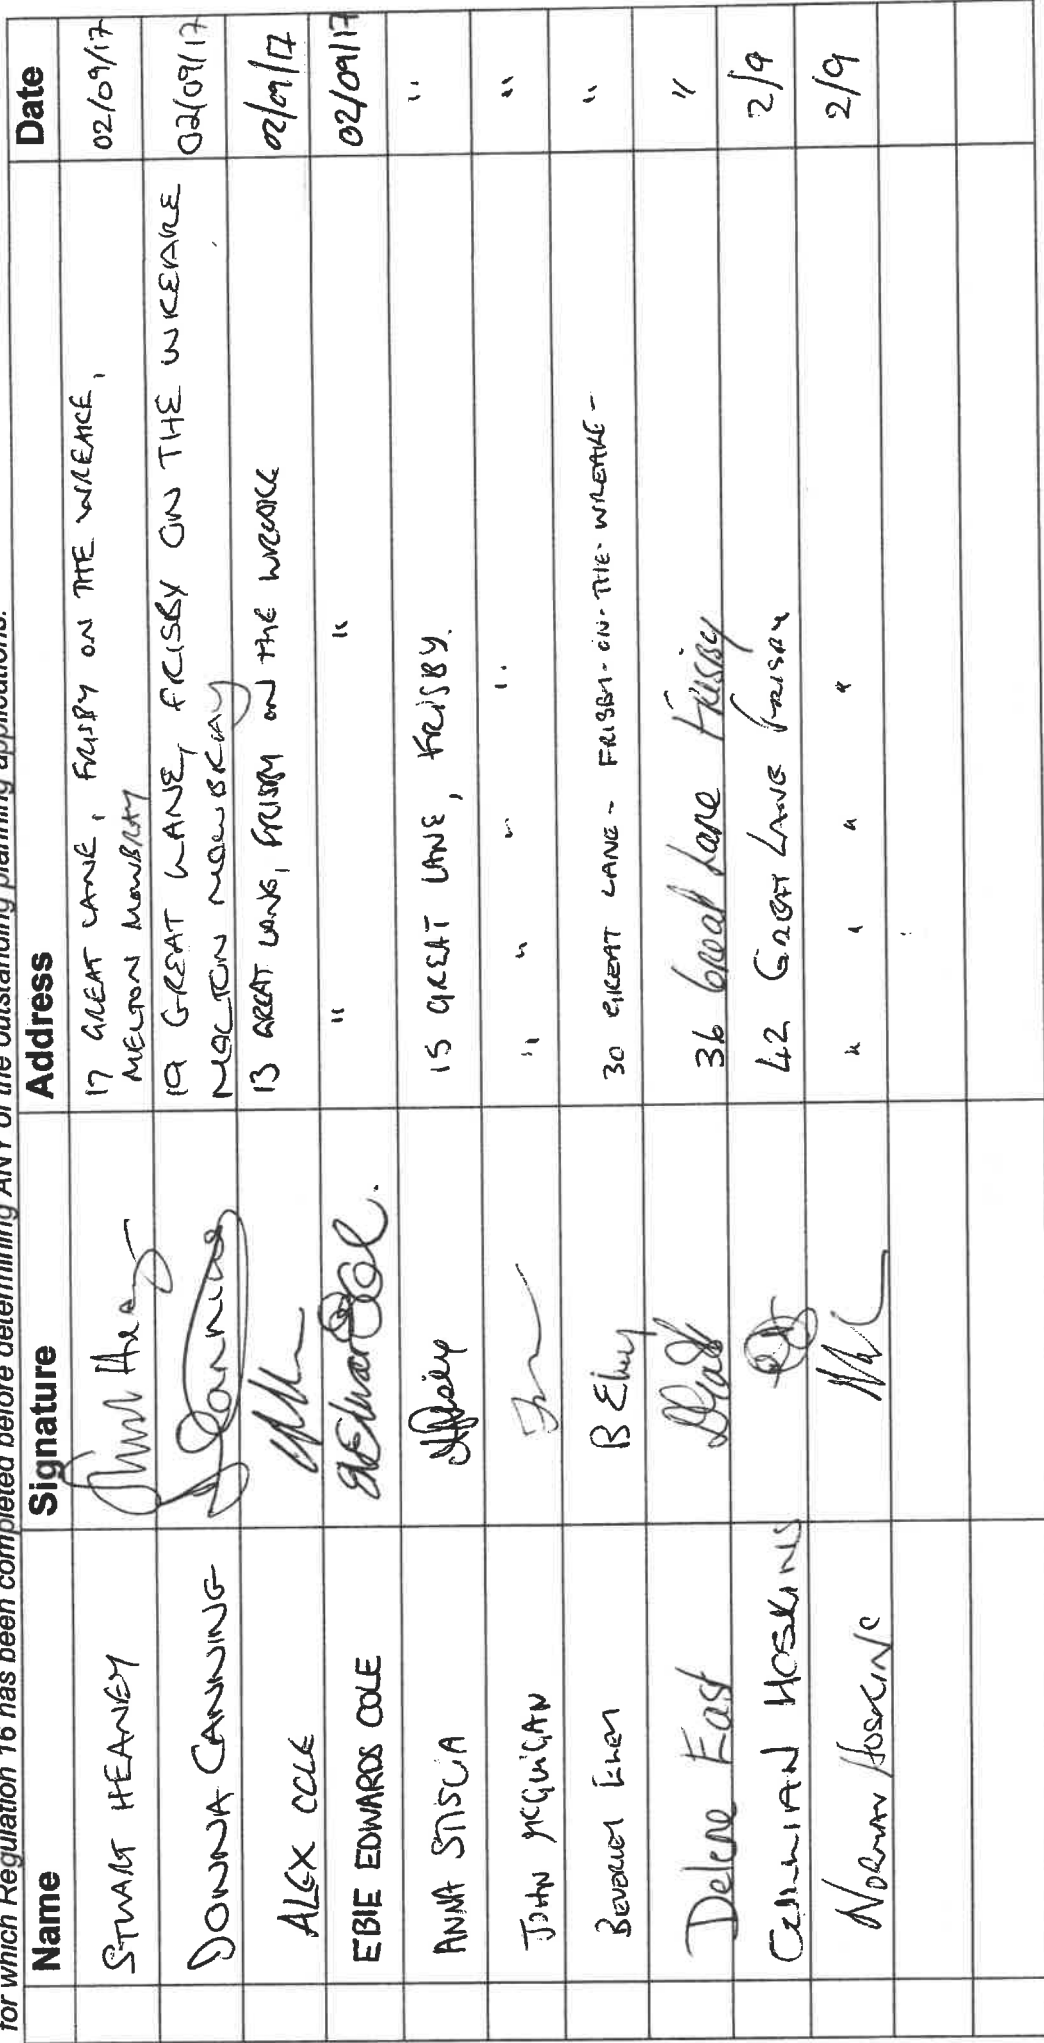 for which Regulation 16 has been completed before determining ANY of the outstanding planning applications.
Name Signature Address Date
STUART HEANEY 17 GREAT LANE, FRISBY ON THE WREAKE, 02/09/17
MELTON MOWBRAY
DONNA CANNING 19 GREAT LANE, FRISBY ON THE WREAKE 02/09/17
MELTON MOWBRAY
ALEX COLE 13 GREAT LANE, FRISBY ON THE WREAKE 02/09/17
EBIE EDWARDS COLE " " 02/09/17
ANNA STISCIA 15 GREAT LANE, FRISBY. "
JOHN McGUIGAN " " " " "
BEVERLEY B Elley 30 GREAT LANE - FRISBY - ON - THE - WREAKE - "
Delene East 36 Great Lane Frisby "
GILLIAN HOSKINS 42 GREAT LANE FRISBY 2/9
NORMAN HOSKINS " " " " 2/9